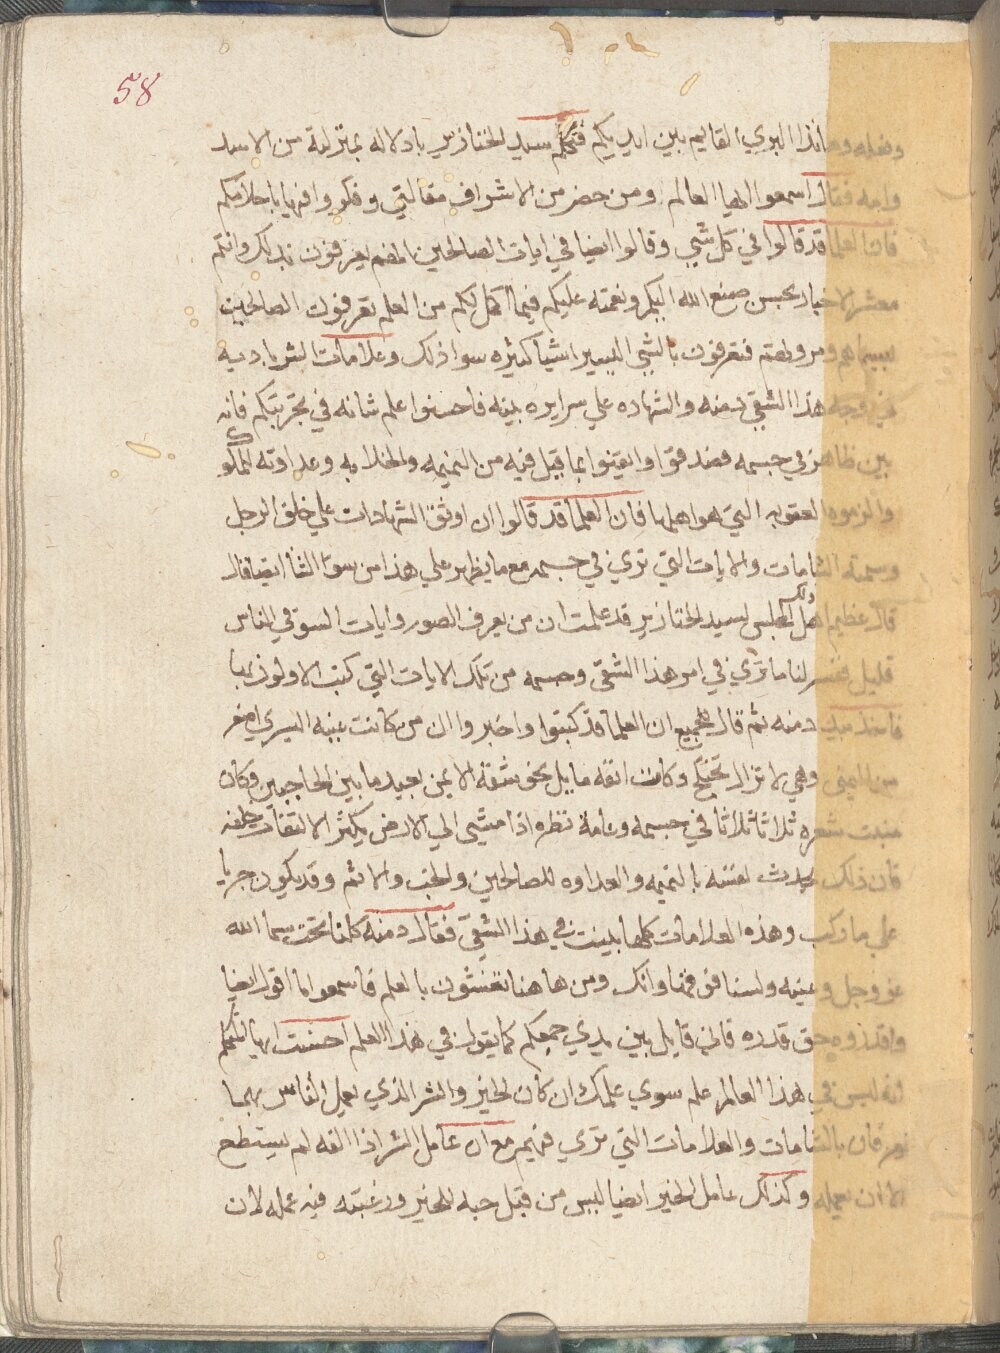 58
وفعله وهانذا البري القايم بين ايديكم فتكلم سيد الخنازير بادلاله بمنزلة من الاسد
وامه فقال اسمعوا ايها العالم ومن حضر من الاشراف مقالتي وفكروا فيها باحلامكم
فان العلما قد قالوا في كل شي وقالوا ايضا في ايات الصالحين انهم يعرفون بذلك وانتم
معشر الاخيار بحسن صنع الله اليكم ونعمته عليكم فيما اكمل لكم من العلم تعرفون الصالحين
بسيماهم ومروطهم فتعرفون بالشي اليسير اشيا كثيره سوا ذلك وعلامات الشر باديه
في وجه هذا الشقي دمنه والشهاده علي سرايره بينه فاحسنوا علم شانه في تجربتكم فانه
بين ظاهر في جسمه فصدقوا وايقنوا بما قيل فيه من النميمه والخلابه وعداوته لكم
والزموه العقوبه التي هو اهلها فان العلما قد قالوا ان اوثق الشهادات علي خلق الرجل
وسمته الشامات والايات التي تري في جسمه مع ما يظهر علي هذا من سوا الثنا ايضا فالـ
قال عظيم اهل المجلس لسيد الخنازير قد علمت ان من يعرف الصور وايات السو في الناس
قليل ففسر لنا ما تري في امر هذا الشقي وجسمه من تلك الايات التي كتب الاولون بها
دمنه ثم قال للجميع ان العلما قد كتبوا واخبروا ان من كانت عينه اليسري اصغر
من اليمني وهي لا تزال تختلج وكانت انفه مايل نحو شقه الايمن بعيد ما بين الحاجبين وكان
منبت شعره ثلاثا ثلاثا في جسمه وعامة نظره اذا مشي الي الارض يكثر الالتفات خلفه
فان ذلك يحدث لفتنه بالنميمه والعداوه للصالحين والخب والاثم وقد يكون جريا
علي ما ركب وهذه العلامات كلها بينت في هذا الشقي فقال دمنه كلنا تحت سما الله
عز وجل وعينه ولسنا فوقها وانك ومن هاهنا تفتشون بالعلم فاسمعوا ما اقول ايضا
واقدروه حق قدره فاني قايل بين يدي جميعكم كما يقول في هذا العلم احسنت ايها المتكلم
انه ليس في هذا العالم علم سوي علمك ان كان الخير والشر الذي يعمل الناس بهما
يعرفان بالشامات والعلامات التي تري فيهم مع ان عامل الشر اذا الفه لم يستطع
الا ان يعمله وكذلك عامل الخير ايضا ليس من قبل حبه للخير ورغبته فيه عمله لان